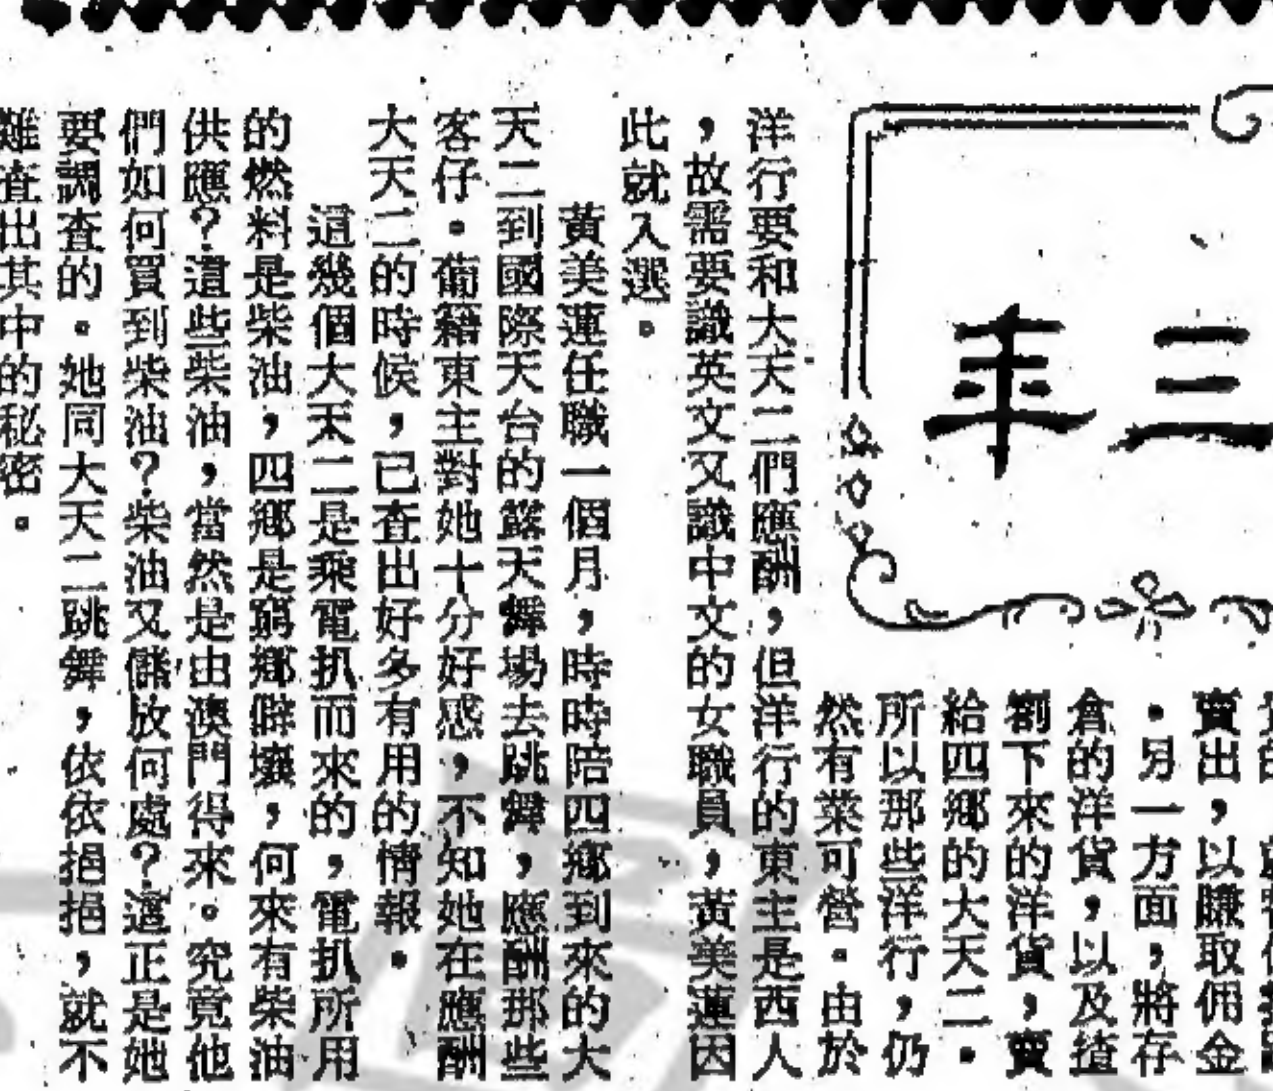 三年
賣出，以賺取佣金
。另一方面，將存
倉的洋貨，以及揸
劏下來的洋貨，賣
給四鄉的大天二。
所以那些洋行，仍
然有業可營。由於
洋行要和大天二們應酬，但洋行的東主是西人
，故需要識英文又識中文的女職員，黃美蓮因
此就入選。
黃美蓮任職一個月，時時陪四鄉到來的大
天二到國際天台的露天舞場去跳舞，應酬那些
客仔。葡籍東主對她十分好感，不知她在應酬
大天二的時候，已查出好多有用的情報。
這幾個大天二是乘電扒而來的，電扒所用
的燃料是柴油，四鄉是窮鄉僻壤，何來有柴油
供應？這些柴油，當然是由澳門得來。究竟他
們如何買到柴油？柴油又儲放何處？這正是她
要調查的。她同大天二跳舞，依依挹挹，就不
難查出其中的秘密。